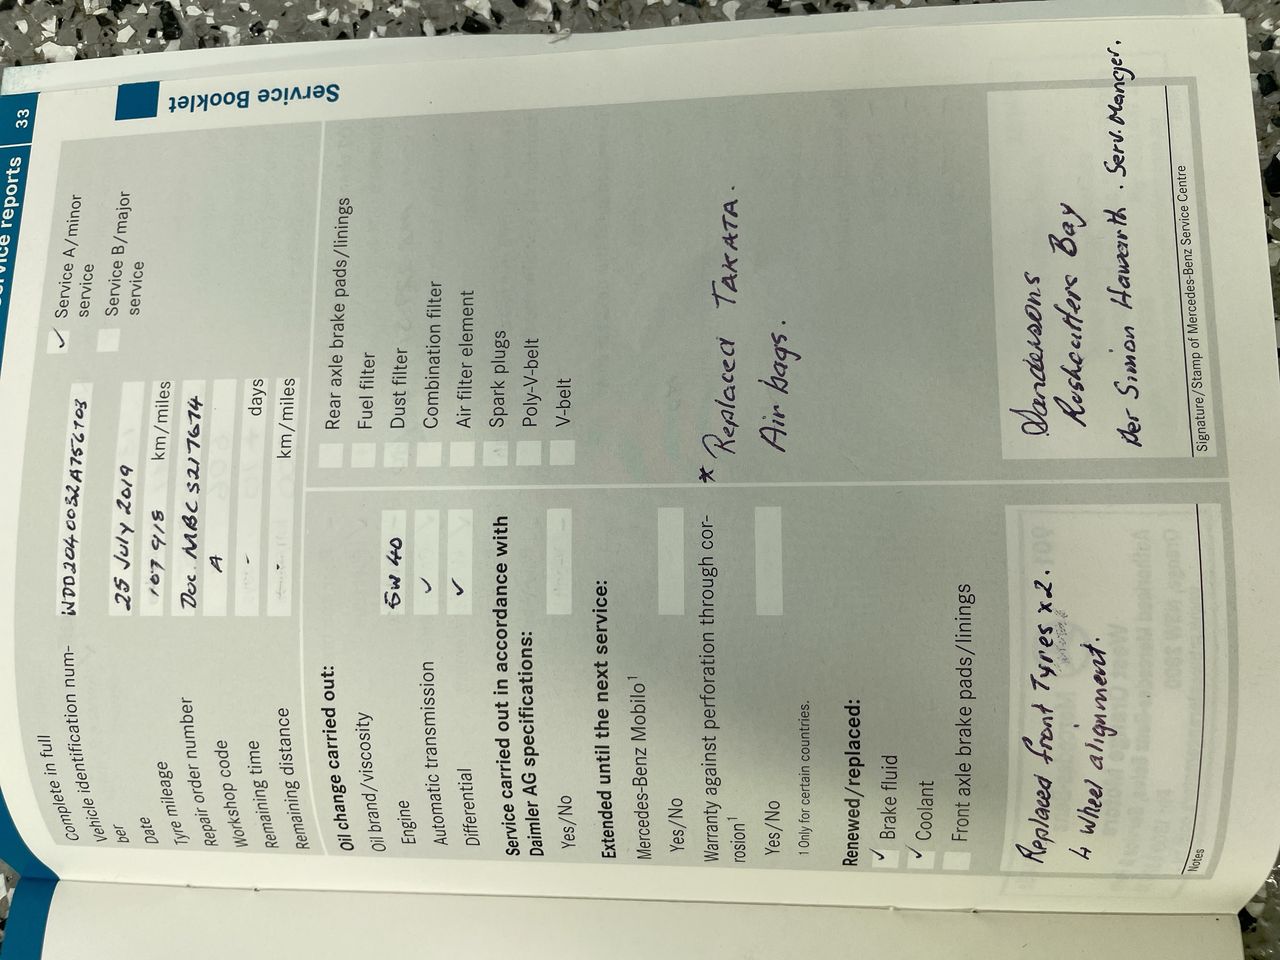 Service reports 33
Service Booklet
Complete in full
Vehicle identification num-
ber
WDD2040032A756703
✓ Service A/minor
service
Service B/major
service
Date 25 July 2019
Tyre mileage 107 918 km/miles
Repair order number Doc. MBCS217674
Workshop code A
Remaining time - days
Remaining distance km/miles
Oil change carried out:
Oil brand/viscosity
Engine 5W40
Automatic transmission ✓
Differential ✓
Service carried out in accordance with
Daimler AG specifications:
Yes/No
Extended until the next service:
Mercedes-Benz Mobilo¹
Yes/No
Warranty against perforation through cor-
rosion¹
Yes/No
1 Only for certain countries.
Renewed/replaced:
✓ Brake fluid
✓ Coolant
Front axle brake pads/linings
Rear axle brake pads/linings
Fuel filter
Dust filter
Combination filter
Air filter element
Spark plugs
Poly-V-belt
V-belt
* Replaced TAKATA.
Air bags.
Replaced front Tyres x 2.
4 Wheel alignment.
Notes
Sandersons
Rushcutters Bay
Per Simon Hawarth. Serv. Manger.
Signature/Stamp of Mercedes-Benz Service Centre